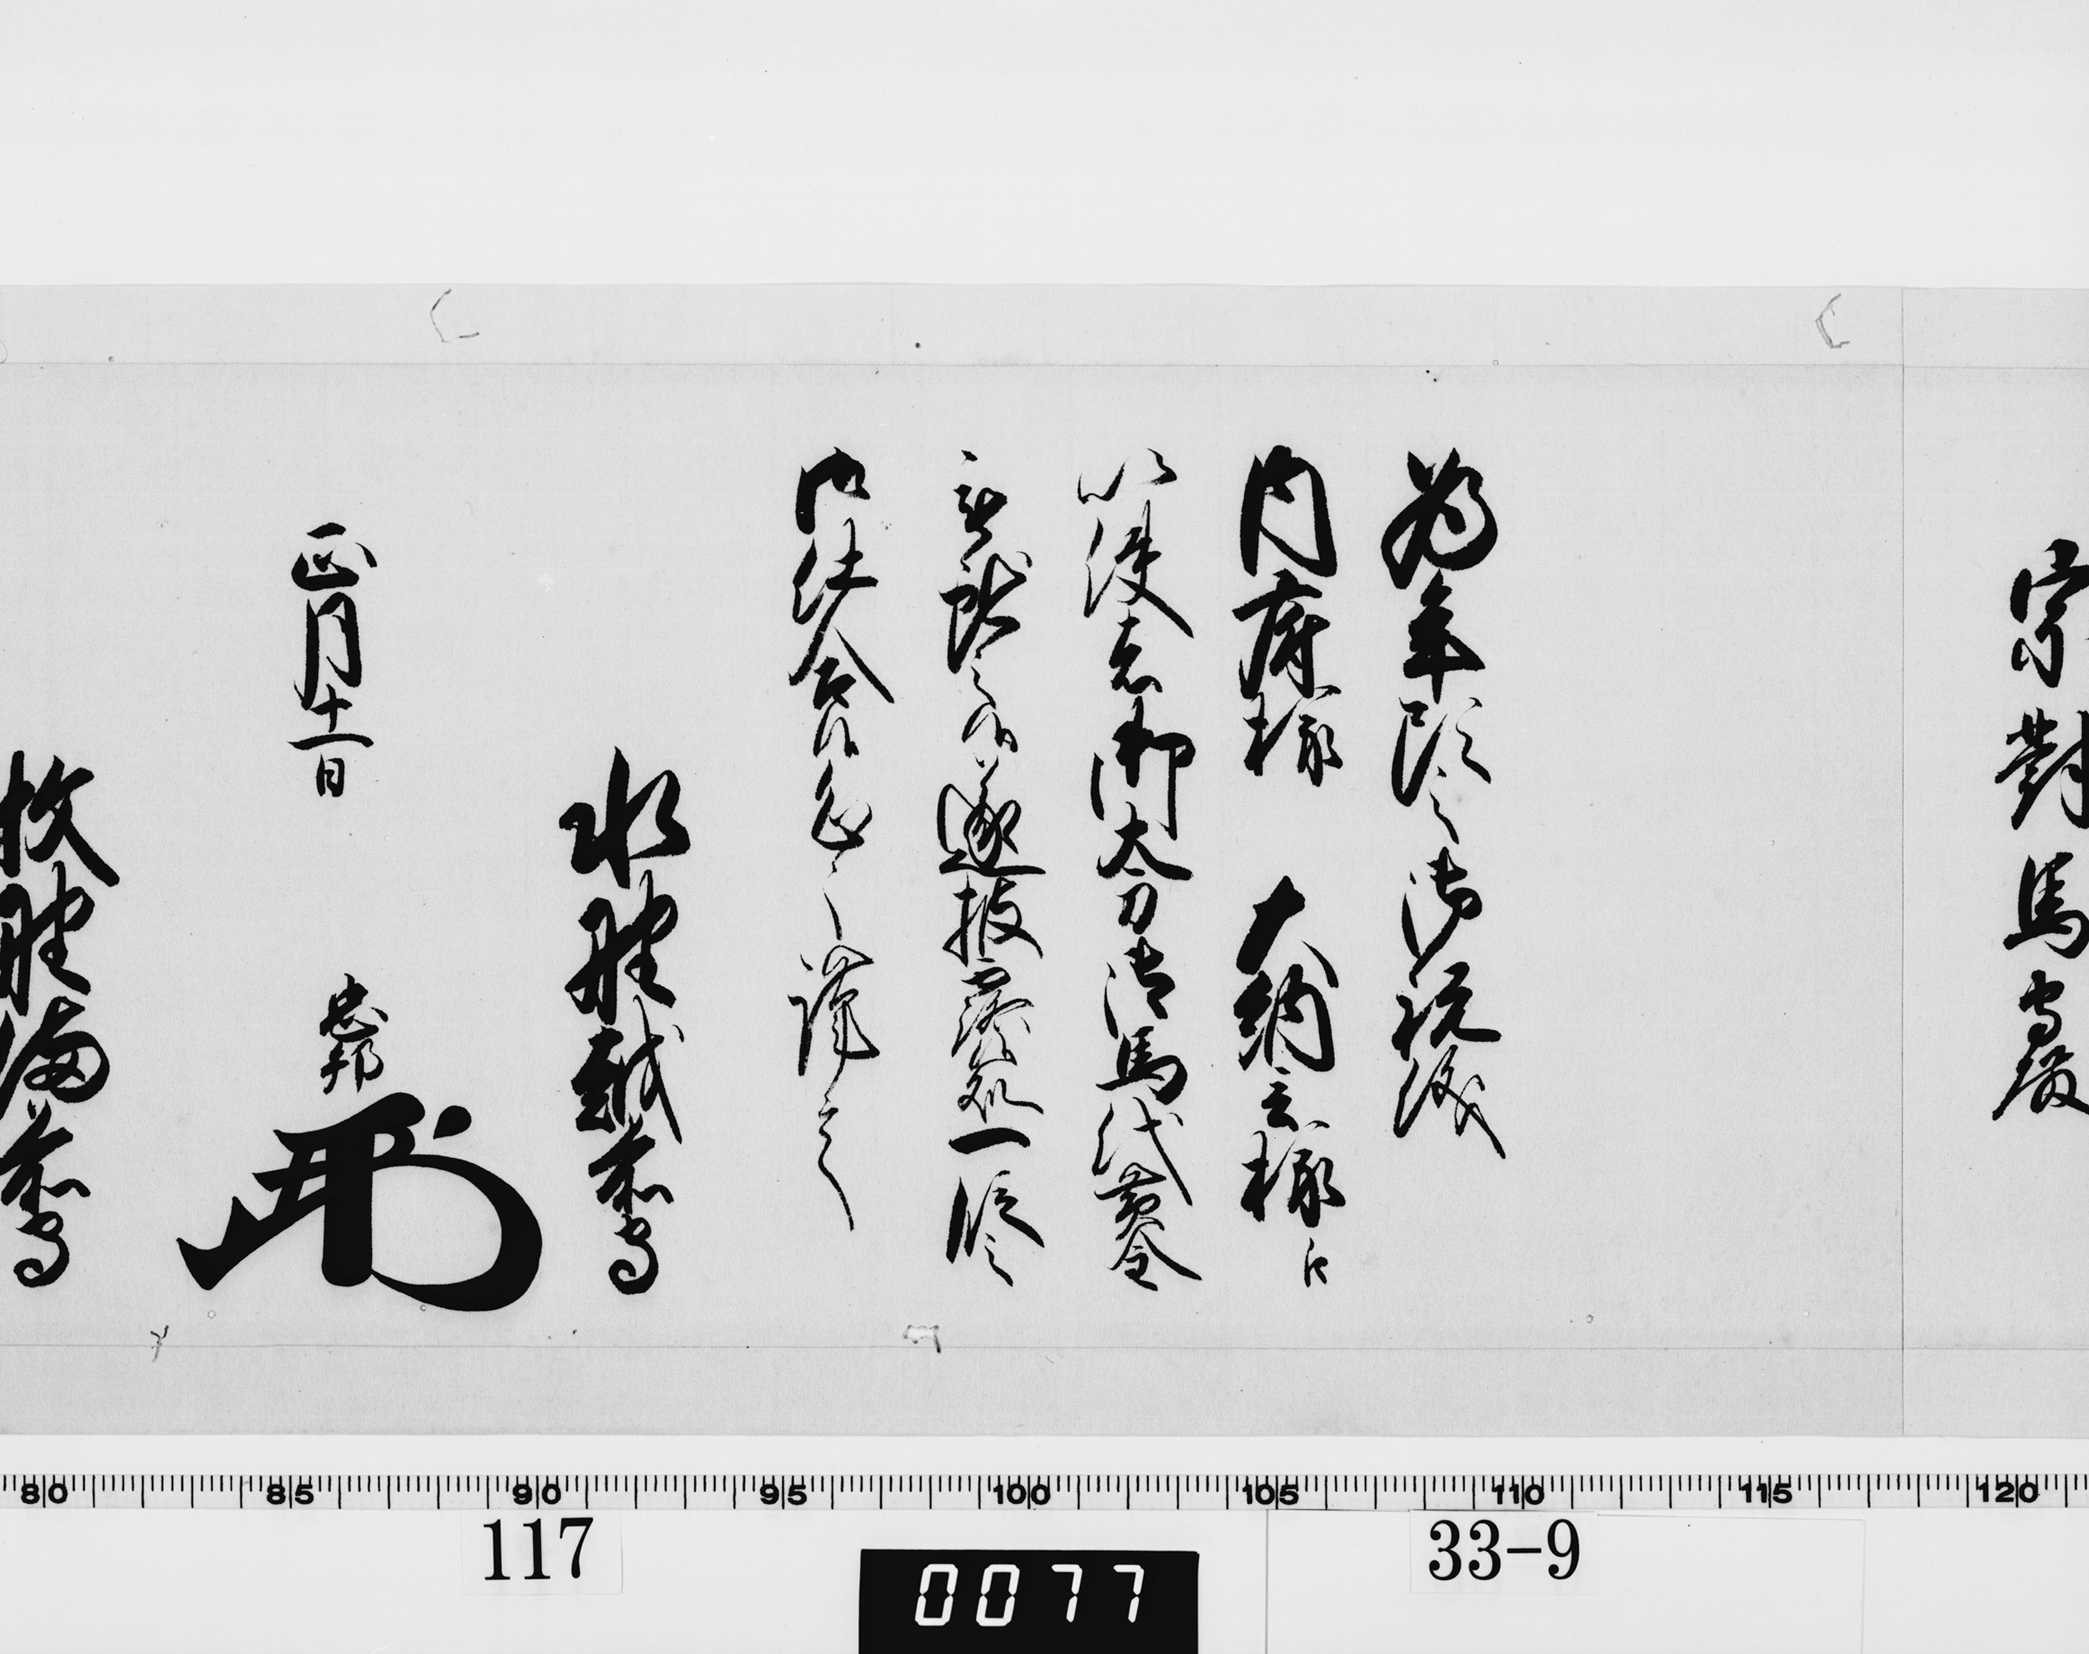 宗對馬守殿
為年頭之御祝儀
内府様　大納言様江
以使者御太刀御馬代黄金
被献之候遂披露処一段之
御仕合候恐々謹言
水野越前守
正月十一日　忠邦
牧野備前守
80 85 90 95 100 105 110 115 120
117
0077
33-9